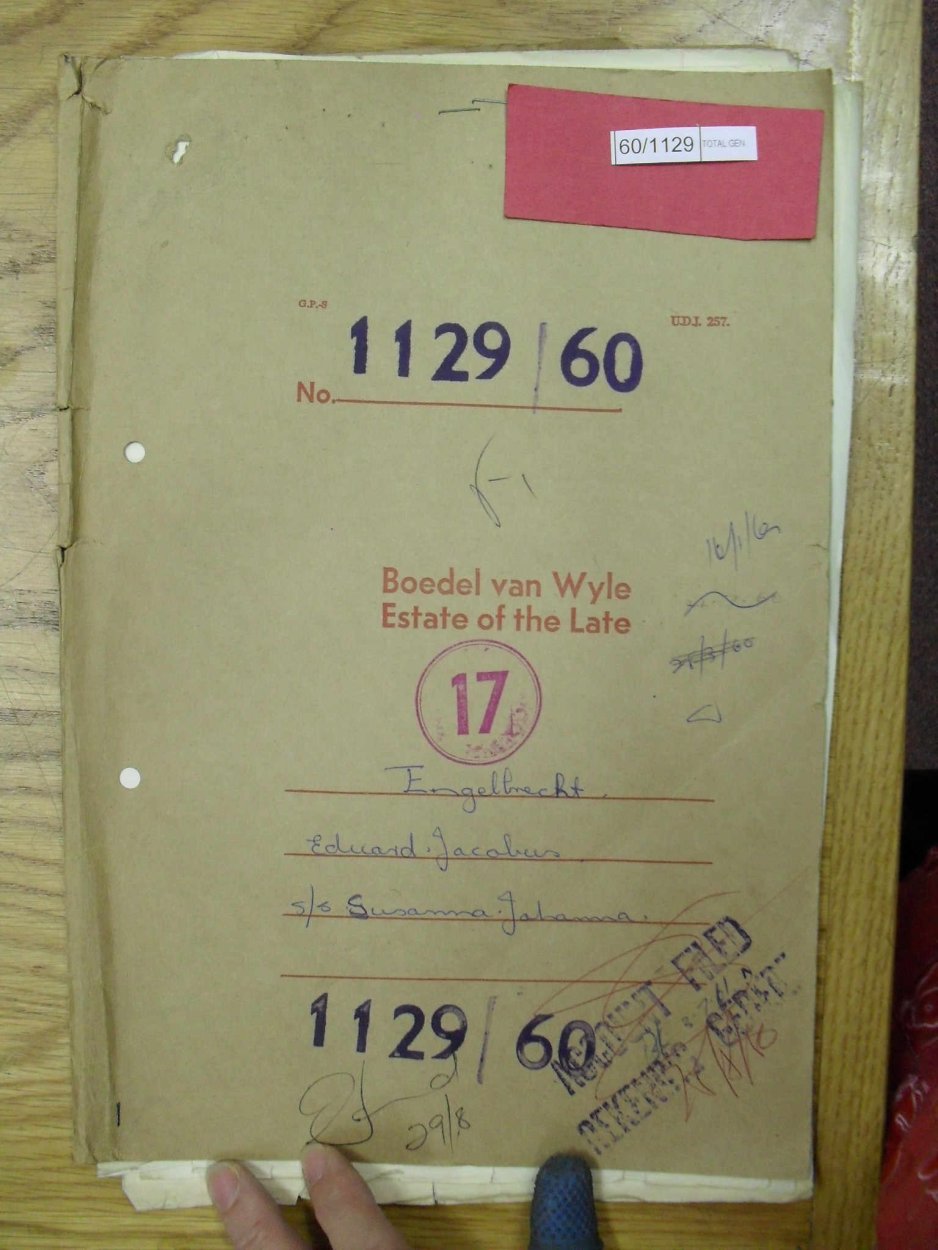 60/1129 TOTAL GEN
G.P.-S
U.D.J. 257.
1129/60
No.
16/1/60
Boedel van Wyle
Estate of the Late
17
Engelbrecht.
Eduard Jacobus
s/s Susanna Johanna.
1129/60
ACCOUNT FILED
REKENING
29/8